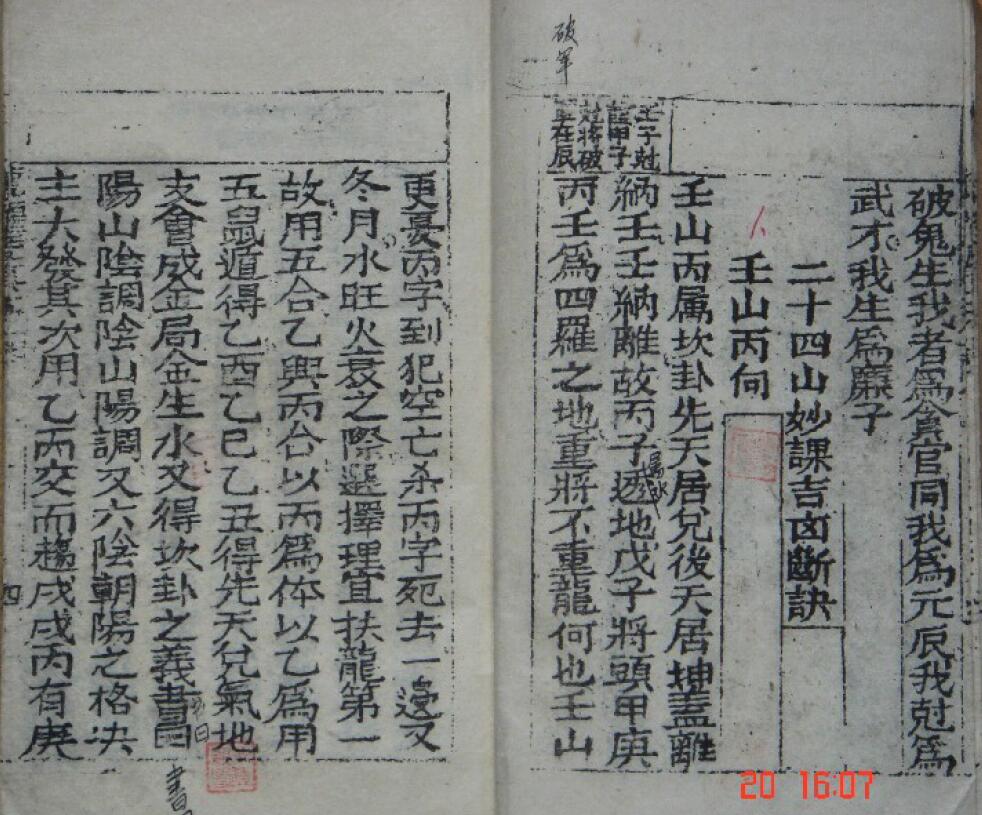 破鬼生我者為貪官同我為元辰我尅為
武才我生為廉子
二十四山妙課吉凶斷訣
壬山丙向
壬山丙属坎卦先天居兌後天居坤蓋離
納壬壬納離故丙子透地戊子將頭甲庚
丙壬爲四羅之地重將不重龍何也壬山
壬子尅
甲子
尅將破
在辰
破軍
属水
更憂丙字到犯空亡杀丙字死去一邊又
冬月水旺火衰之際選擇理宜扶龍第一
故用五合乙與丙合以丙為体以乙爲用
五鼠遁得乙酉乙巳乙丑得先天兌氣地
支會成金局金生水又得坎卦之義書曰
陽山陰調陰山陽調又六陰朝陽之格决
主大發其次用乙丙交而趨戌戌丙有庚
四
書
曰
20 16:07